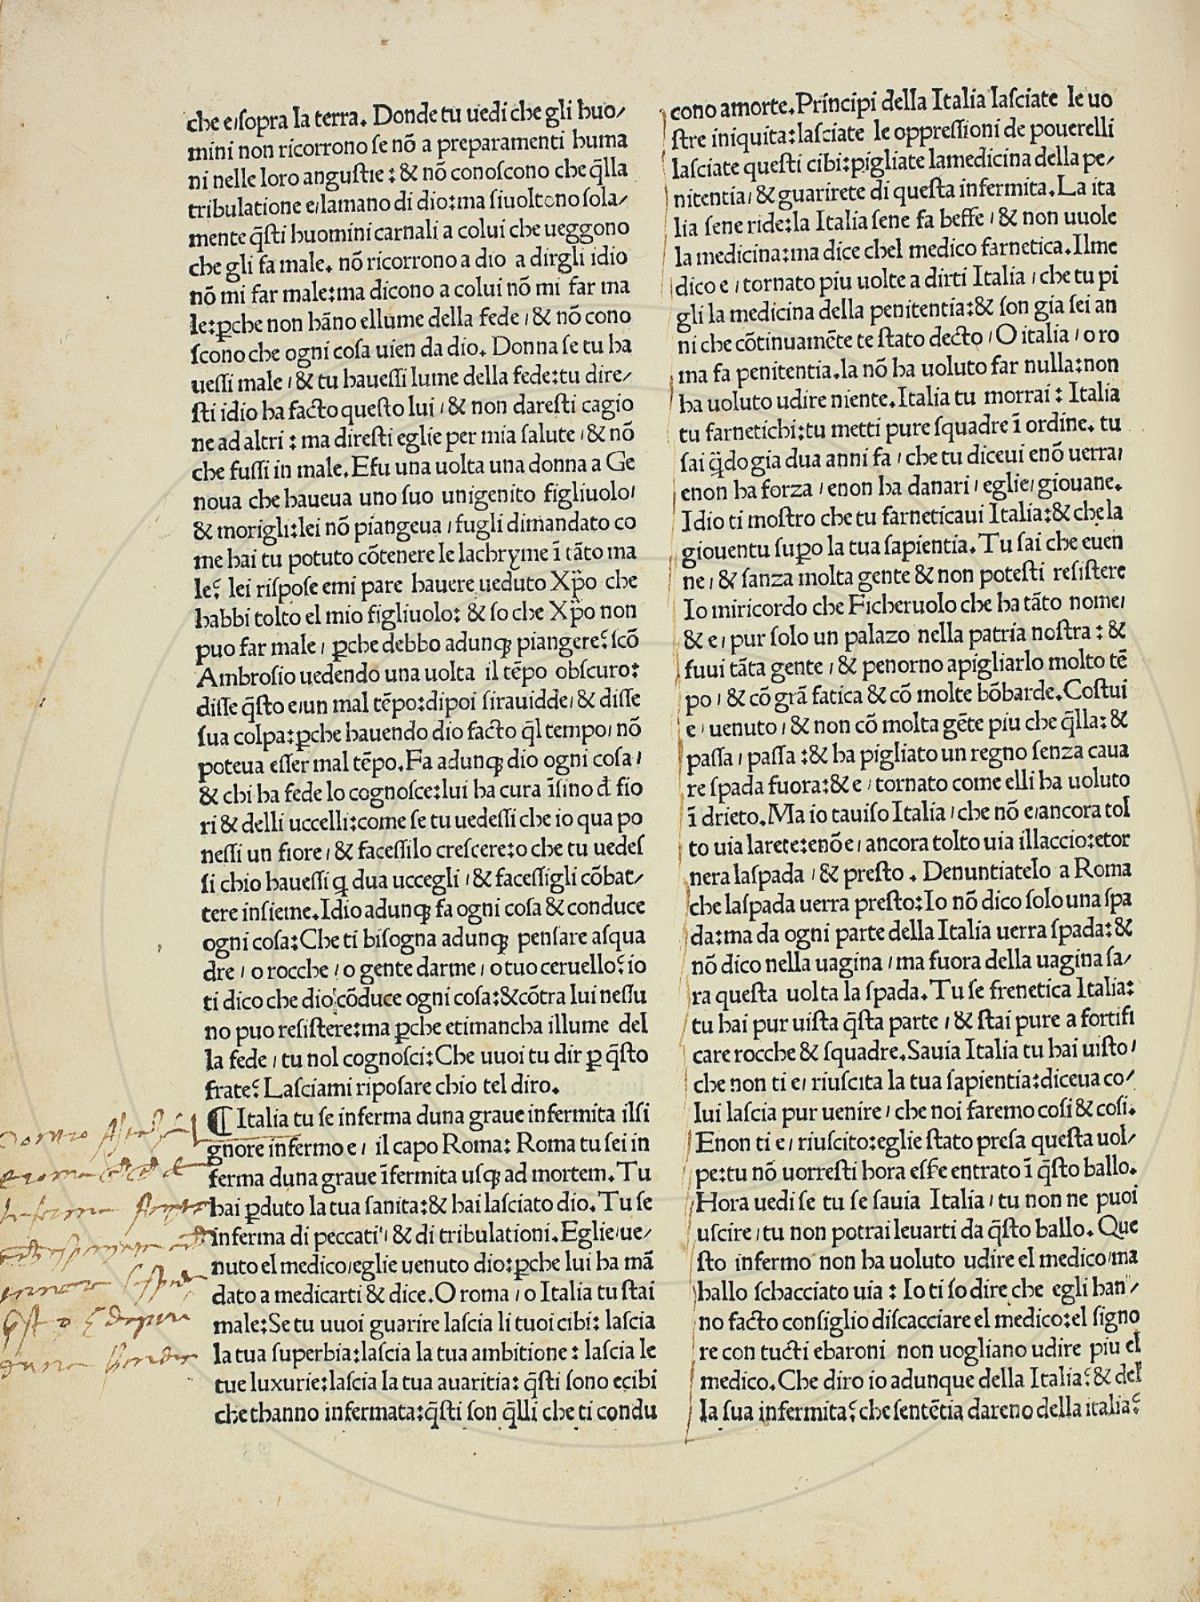 che e/sopra la terra. Donde tu uedi che gli huo/
mini non ricorrono se nõ a preparamenti huma
ni nelle loro angustie: & nõ conoscono che q̃lla
tribulatione e/lamano di dio:ma siuoltono sola/
mente q̃sti huomini carnali a colui che ueggono
che gli fa male. nõ ricorrono a dio a dirgli idio
nõ mi far male:ma dicono a colui nõ mi far ma
le:ꝑche non hãno ellume della fede / & nõ cono
scono che ogni cosa uien da dio. Donna se tu ha
uessi male / & tu hauessi lume della fede:tu dire/
sti idio ha facto questo lui / & non daresti cagio
ne ad altri : ma diresti eglie per mia salute / & nõ
che fussi in male. Efu una uolta una donna a Ge
noua che haueua uno suo unigenito figliuolo/
& morigli:lei nõ piangeua / fugli dimandato co
me hai tu potuto cõtenere le lachryme ĩ tãto ma
le? lei rispose emi pare hauere ueduto Xp̃o che
habbi tolto el mio figliuolo: & so che Xp̃o non
puo far male / ꝑche debbo adunqꝫ piangere? scõ
Ambrosio uedendo una uolta il tẽpo obscuro:
disse q̃sto e/un mal tẽpo:dipoi sirauidde/ & disse
sua colpa:ꝑche hauendo dio facto q̃l tempo/ nõ
poteua esser mal tẽpo. Fa adunqꝫ dio ogni cosa /
& chi ha fede lo cognosce:lui ha cura ĩsino đ fio
ri & delli uccelli:come se tu uedessi che io qua po
nessi un fiore / & facessilo crescere:o che tu uedes
si chio hauessi q̃ dua uccegli / & facessigli cõbat/
tere insieme. Idio adunqꝫ fa ogni cosa & conduce
ogni cosa:Che ti bisogna adunqꝫ pensare asqua
dre / o rocche / o gente darme / o tuo ceruello? io
ti dico che dio cõduce ogni cosa:&cõtra lui nessu
no puo resistere:ma ꝑche etimancha illume del
la fede / tu nol cognosci:Che uuoi tu dir ꝑ q̃sto
frate? Lasciami riposare chio tel diro.
¶ Italia tu se inferma duna graue infermita ilsi
gnore infermo e / il capo Roma: Roma tu sei in
ferma duna graue ĩfermita usqꝫ ad mortem. Tu
hai ꝑduto la tua sanita:& hai lasciato dio. Tu se
inferma di peccati / & di tribulationi. Eglie/ue/
nuto el medico/eglie uenuto dio:ꝑche lui ha mã
dato a medicarti & dice. O roma / o Italia tu stai
male:Se tu uuoi guarire lascia li tuoi cibi: lascia
la tua superbia:lascia la tua ambitione : lascia le
tue luxurie:lascia la tua auaritia: q̃sti sono ecibi
che thanno infermata:q̃sti son q̃lli che ti condu
cono amorte. Principi della Italia lasciate le uo
stre iniquita:lasciate le oppressioni de pouerelli
lasciate questi cibi:pigliate lamedicina della pe/
nitentia/ & guarirete di questa infermita. La ita
lia sene ride:la Italia sene fa beffe / & non uuole
la medicina:ma dice chel medico farnetica. Ilme
dico e / tornato piu uolte a dirti Italia / che tu pi
gli la medicina della penitentia:& son gia sei an
ni che cõtinuamẽte te stato decto / O italia / o ro
ma fa penitentia. la nõ ha uoluto far nulla:non
ha uoluto udire niente. Italia tu morrai : Italia
tu farnetichi:tu metti pure squadre ĩ ordine. tu
sai q̃do gia dua anni fa / che tu diceui enõ uerra/
enon ha forza / enon ha danari / eglie / giouane.
Idio ti mostro che tu farneticaui Italia:& che la
giouentu suꝑo la tua sapientia. Tu sai che euen
ne / & sanza molta gente & non potesti resistere
Io miricordo che Ficheruolo che ha tãto nome/
& e / pur solo un palazo nella patria nostra : &
fuui tãta gente / & penorno apigliarlo molto tẽ
po / & cõ grã fatica & cõ molte bõbarde. Costui
e / uenuto / & non cõ molta gẽte piu che q̃lla: &
passa / passa :& ha pigliato un regno senza caua
re spada fuora:& e / tornato come elli ha uoluto
ĩ drieto. Ma io tauiso Italia / che nõ e/ancora tol
to uia larete:enõ e / ancora tolto uia illaccio:etor
nera laspada / & presto . Denuntiatelo a Roma
che laspada uerra presto:Io nõ dico solo una spa
da:ma da ogni parte della Italia uerra spada: &
nõ dico nella uagina / ma fuora della uagina sa/
ra questa uolta la spada. Tu se frenetica Italia:
tu hai pur uista q̃sta parte / & stai pure a fortifi
care rocche & squadre. Sauia Italia tu hai uisto /
che non ti e / riuscita la tua sapientia:diceua co/
lui lascia pur uenire / che noi faremo cosi & cosi.
Enon ti e / riuscito:eglie stato presa questa uol/
pe:tu nõ uorresti hora essere entrato ĩ q̃sto ballo.
Hora uedi se tu se sauia Italia / tu non ne puoi
uscire / tu non potrai leuarti da q̃sto ballo. Que
sto infermo non ha uoluto udire el medico/ma
hallo schacciato uia : Io ti so dire che egli han/
no facto consiglio discacciare el medico:el signo
re con tucti ebaroni non uogliano udire piu el
medico. Che diro io adunque della Italia? & del
la sua infermita? che sentẽtia dareno della italia?